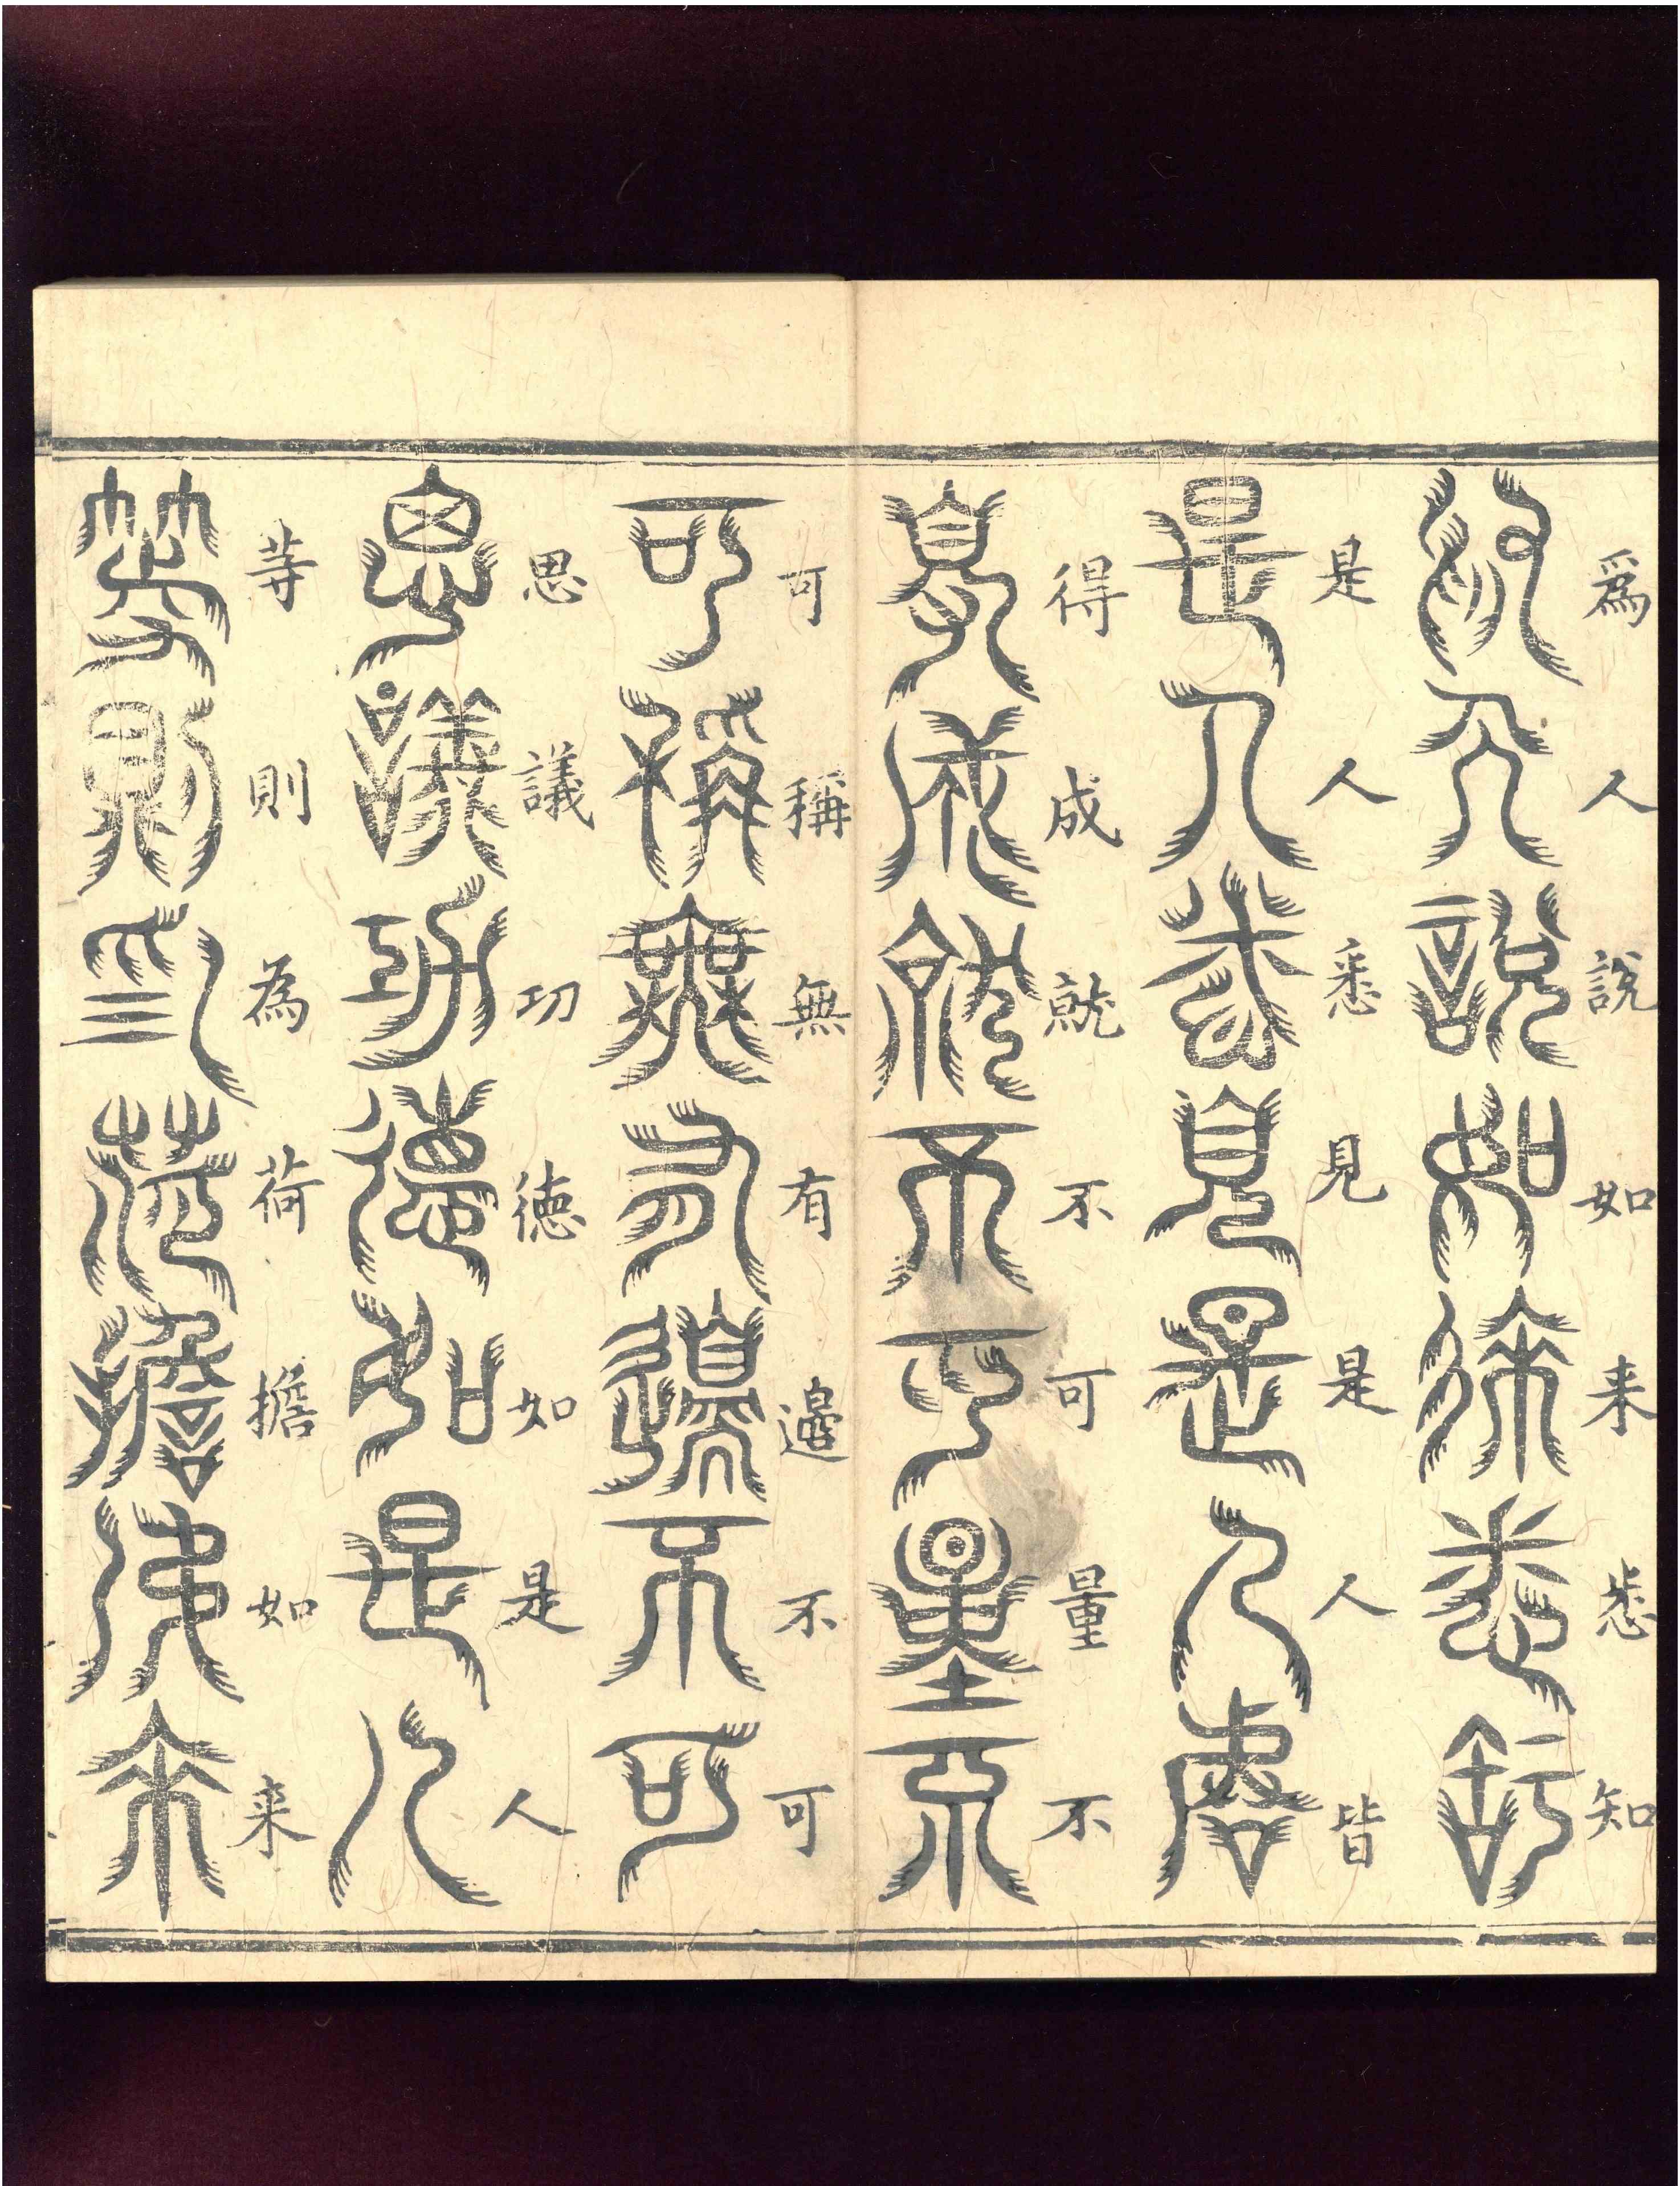 爲人說如来悉知
是人悉見是人皆
得成就不可量不
可稱無有邊不可
思議功徳如是人
䓁則為荷擔如来